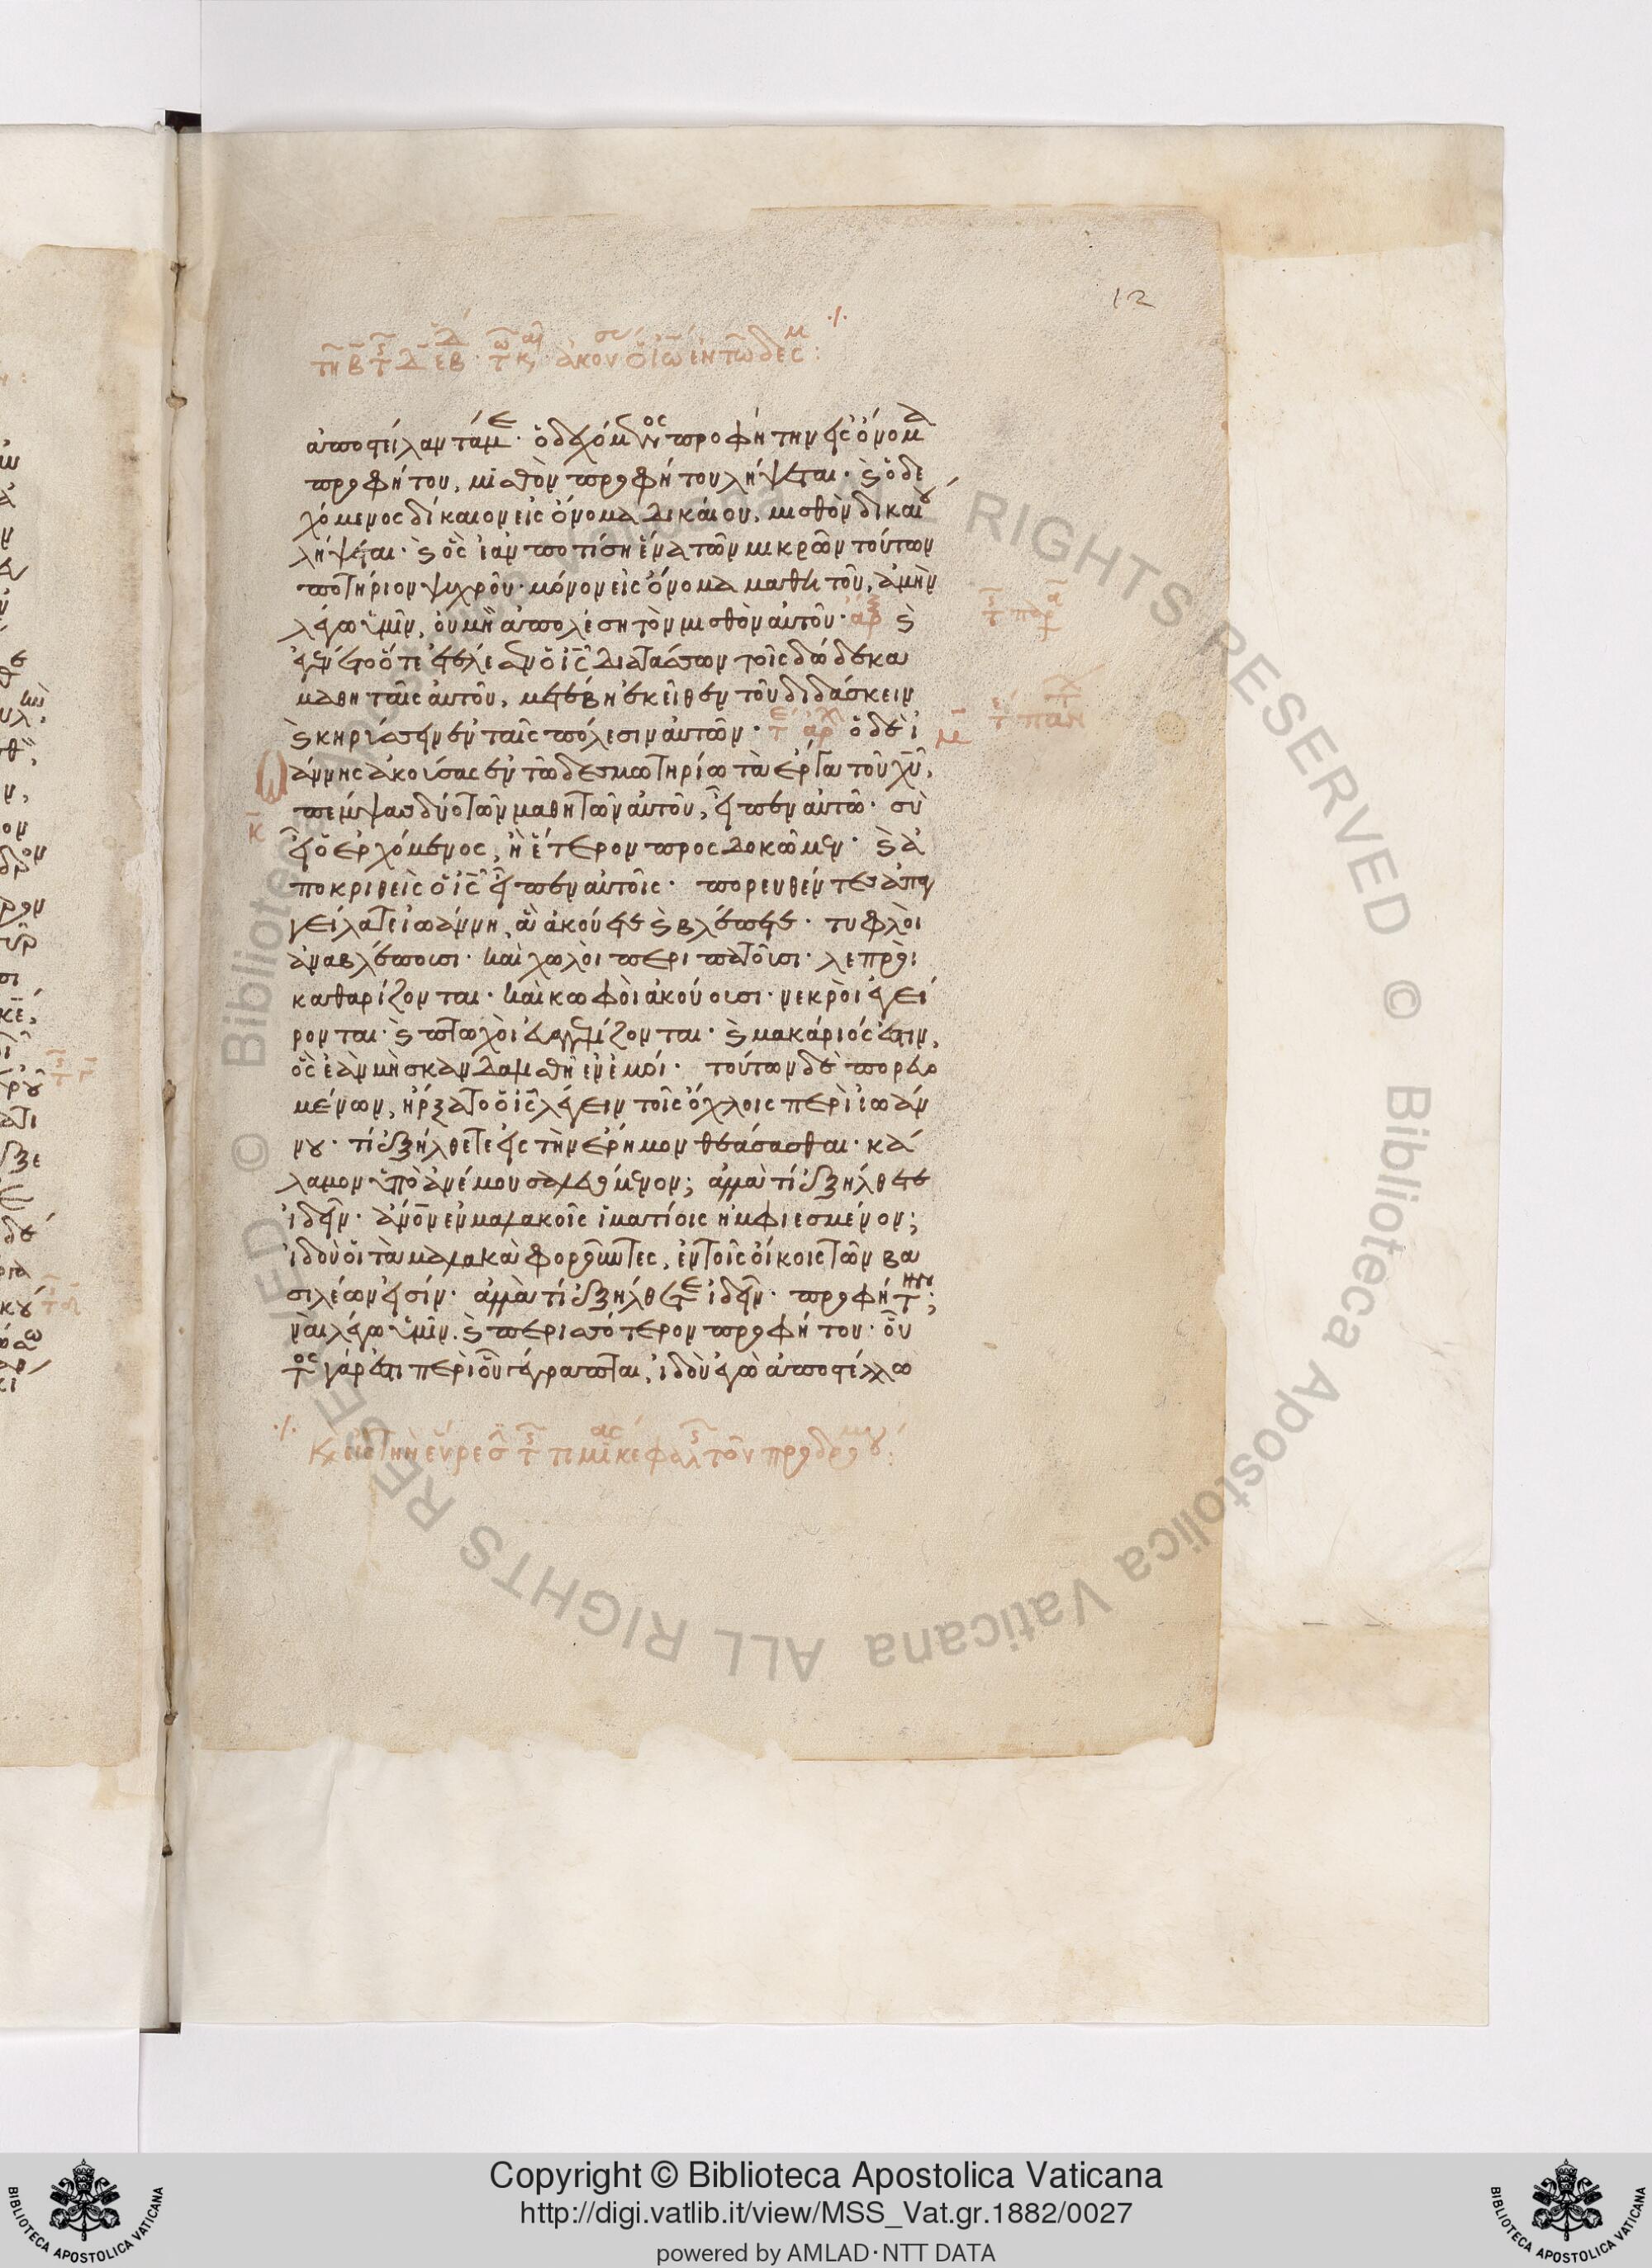 12
ἀποστείλαντά με · ὁ δεχόμενος προφήτην εἰς ὄνομα
προφήτου, μισθὸν προφήτου λήψεται · ϗ ὁ δε
χόμενος δίκαιον εἰς ὄνομα δικαίου, μισθὸν δικαίου
λήψεται · ϗ ὃς ἐὰν ποτίση ἕνα τῶν μικρῶν τούτων
ποτήριον ψυχροῦ · μόνον εἰς ὄνομα μαθητοῦ, ἀμὴν
λέγω ὑμῖν, οὐ μὴ ἀπολέση τὸν μισθὸν αὐτοῦ · ϗ
ἐγένετο ὅτε ἐτέλεσεν ὁ ις διατάσσων τοῖς δώδεκα
μαθηταῖς αὐτοῦ, μετέβη ἐκεῖθεν τοῦ διδάσκειν
ϗ κηρύσσειν ἐν ταῖς πόλεσιν αὐτῶν · ὁ δὲ ἰ
ωάννης ἀκούσας ἐν τῶ δεσμωτηρίω τὰ ἔργα τοῦ χυ,
κ
πέμψας δύο τῶν μαθητῶν αὐτοῦ, εἶπεν αὐτῶ · σὺ
εἶ ὁ ἐρχόμενος, ἢ ἕτερον προσδοκῶμεν · ϗ ἀ
ποκριθεὶς ὁ ις εἶπεν αὐτοῖς · πορευθέντες ἀπαγ
γείλατε ἰωάννη, ἃ ἀκούετε ϗ βλέπετε · τυφλοὶ
ἀναβλέπουσι · καὶ χωλοὶ περιπατοῦσι · λεπροὶ
καθαρίζονται · καὶ κωφοὶ ἀκούουσι · νεκροὶ ἐγεί
ρονται · ϗ πτωχοὶ εὐαγγελίζονται · ϗ μακάριός ἐστιν,
ὃς ἐὰν μὴ σκανδαλισθῆ ἐν ἐμοί · τούτων δὲ πορευο
μένων, ἤρξατο ὁ ις λέγειν τοῖς ὄχλοις περὶ ἰωάν
νου · τί ἐξήλθετε εἰς τὴν ἔρημον θεάσασθαι · κά
λαμον ὑπὸ ἀνέμου σαλευόμενον; ἀλλὰ τί ἐξήλθετε
ἰδεῖν · ἄνον ἐν μαλακοῖς ἱματίοις ἠμφιεσμένον;
ἰδοὺ οἱ τὰ μαλακὰ φοροῦντες, ἐν τοῖς οἴκοις τῶν βα
σιλέων εἰσίν · ἀλλὰ τί ἐξήλθετε ἰδεῖν · προφήτην;
ναὶ λέγω ὑμῖν. ϗ περισσότερον προφήτου · οὗ
τος γάρ ἐστι περὶ οὗ γέγραπται, ἰδοὺ ἐγὼ ἀποστέλλω
Copyright © Biblioteca Apostolica Vaticana
http://digi.vatlib.it/view/MSS_Vat.gr.1882/0027
powered by AMLAD·NTT DATA